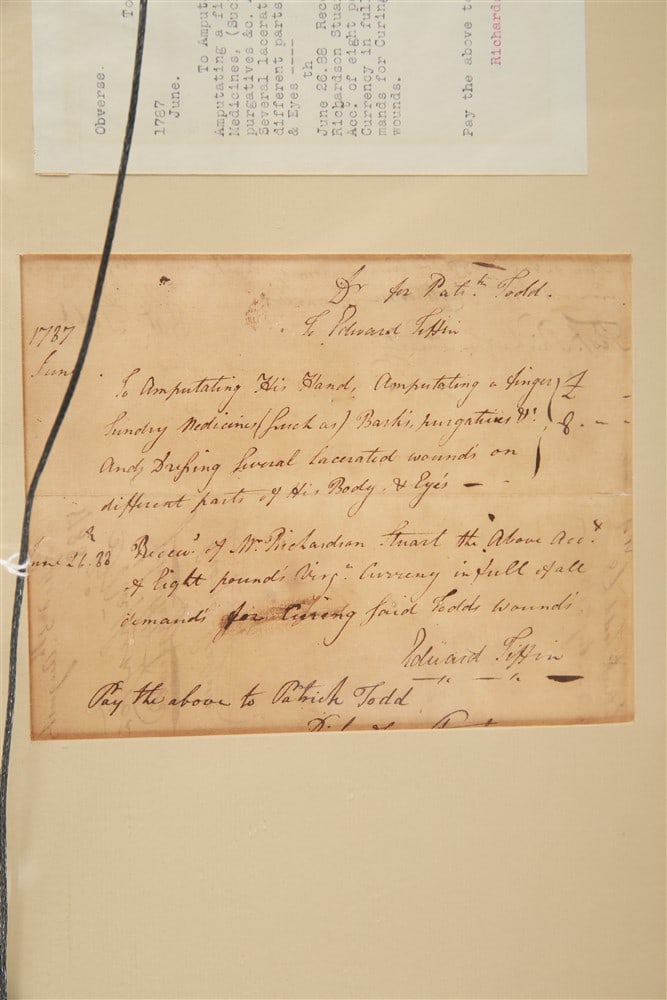 Obverse.
To
1787
June.
To Amput
Amputating a fi
Medicines, (Suc
purgatives &c.
Several lacerat
different parts
& Eyes ----
th
June 26.88 Rece
Richardson Stua
Acc. of eight po
Currency in full
mands for Curing
wounds.
Pay the above t
Richards
Dr for Pati.th Todd.
To Edward Tiffin
1787
June
To Amputating His Hand, Amputating a finger
Sundry Medicines (Such as) Barks, purgatives &c.
And, Dressing Several Lacerated wounds on
different parts of His Body, & Eye's —
£
8 - -
June 26.88 th Receiv'd of Mr. Richardson Stuart the Above Acct.
of Eight pound's Virga. Currency in full of all
demand's for Curing said Todds wounds.
Edward Tiffin
Pay the above to Patrick Todd